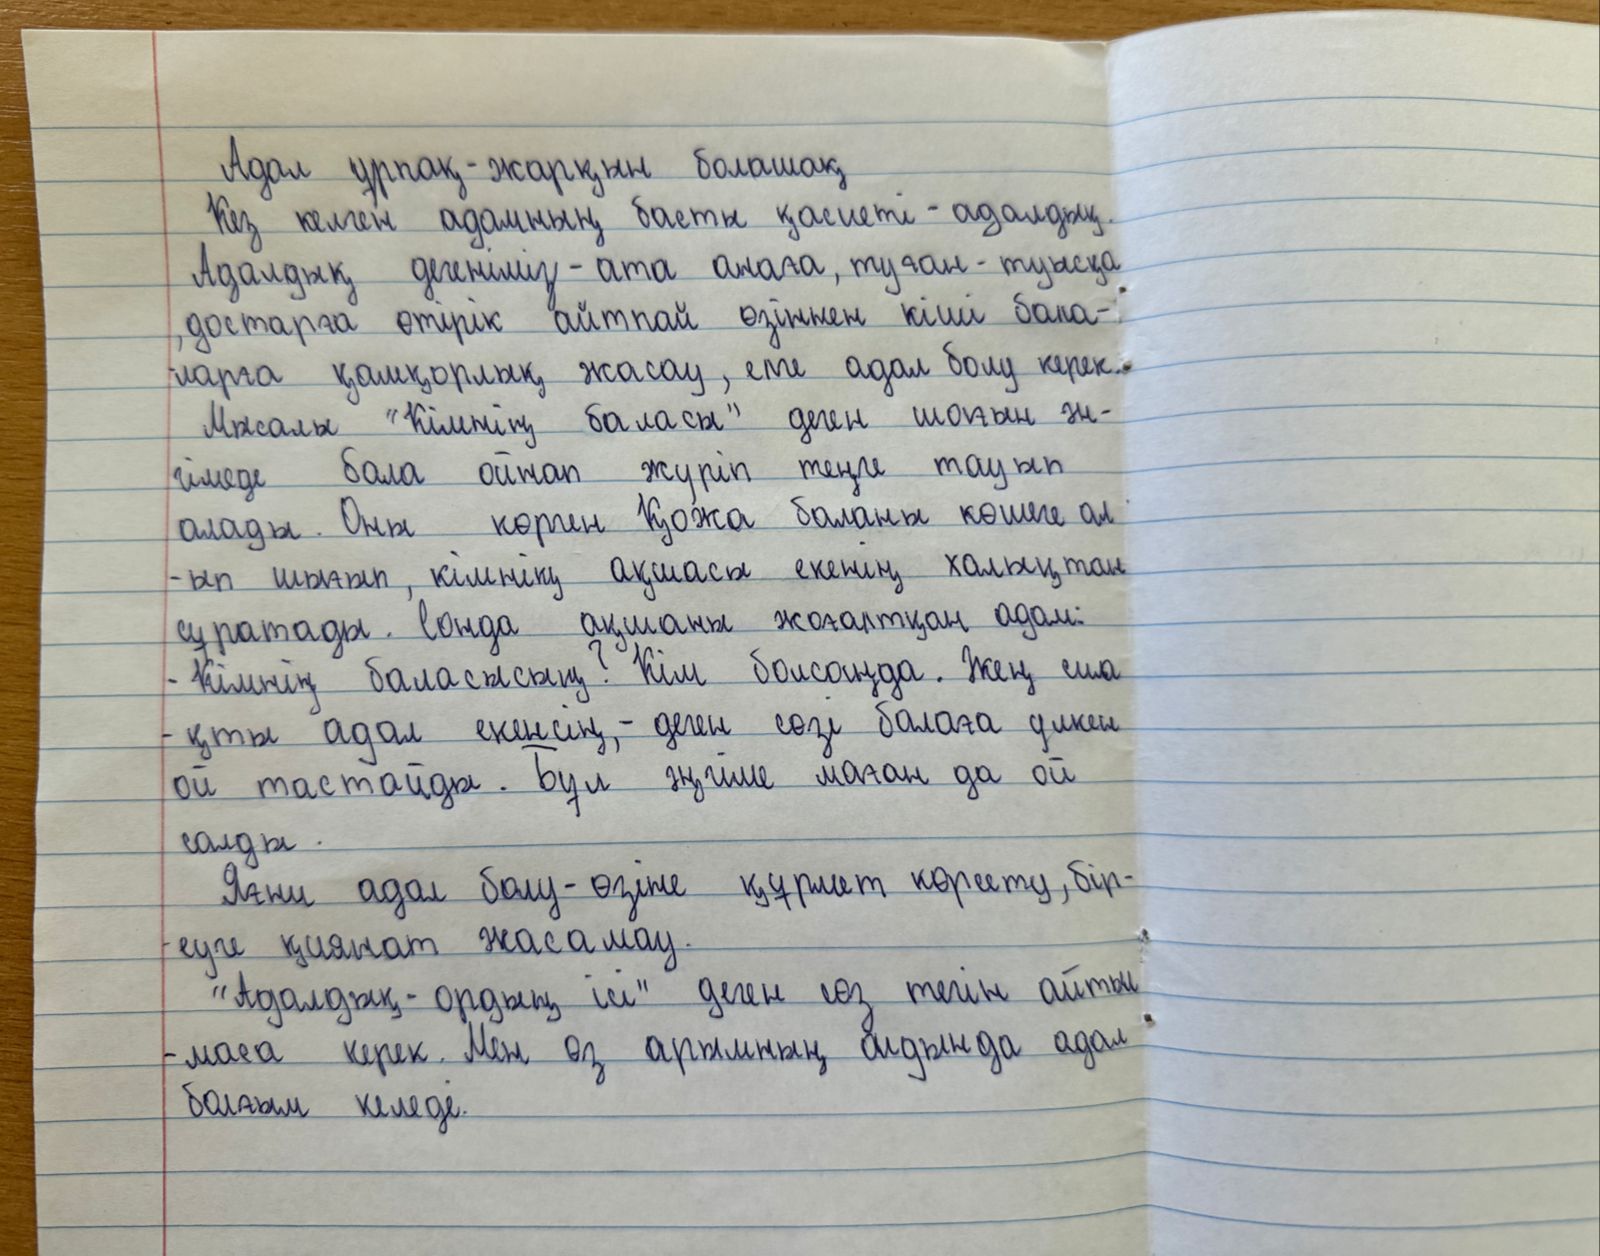 Адал ұрпақ-жарқын болашақ
Кез келген адамның басты қасиеті - адалдық.
Адалдық дегеніміз - ата анаға, туған - туысқа
,достарға өтірік айтпай өзіннен кіші бала-
-ларға қамқорлық жасау, ете адал болу керек.
Мысалы "Кімнің баласы" деген шағын әң-
гімеде бала ойнап жүріп теңге тауып
алады. Оны көрген Қожа баланы көшеге ал
-ып шығып, кімнің ақшасы екенің халықтан
сұратады. Сонда ақшаны жоғалтқан адам:
- Кімнің баласысың? Кім болсаңда. Жең сияа
-қты адал екенсің, - деген сөзі балаға үлкен
ой тастайды. Бұл әңгіме маған да ой
салды.
Яғни адал болу - өзіне құрмет көрсету, бір-
-еуге қиянат жасамау.
"Адалдық - ордың ісі" деген сөз тегін айтыл
-маса керек. Мен өз арымның алдында адал
болғым келеді.